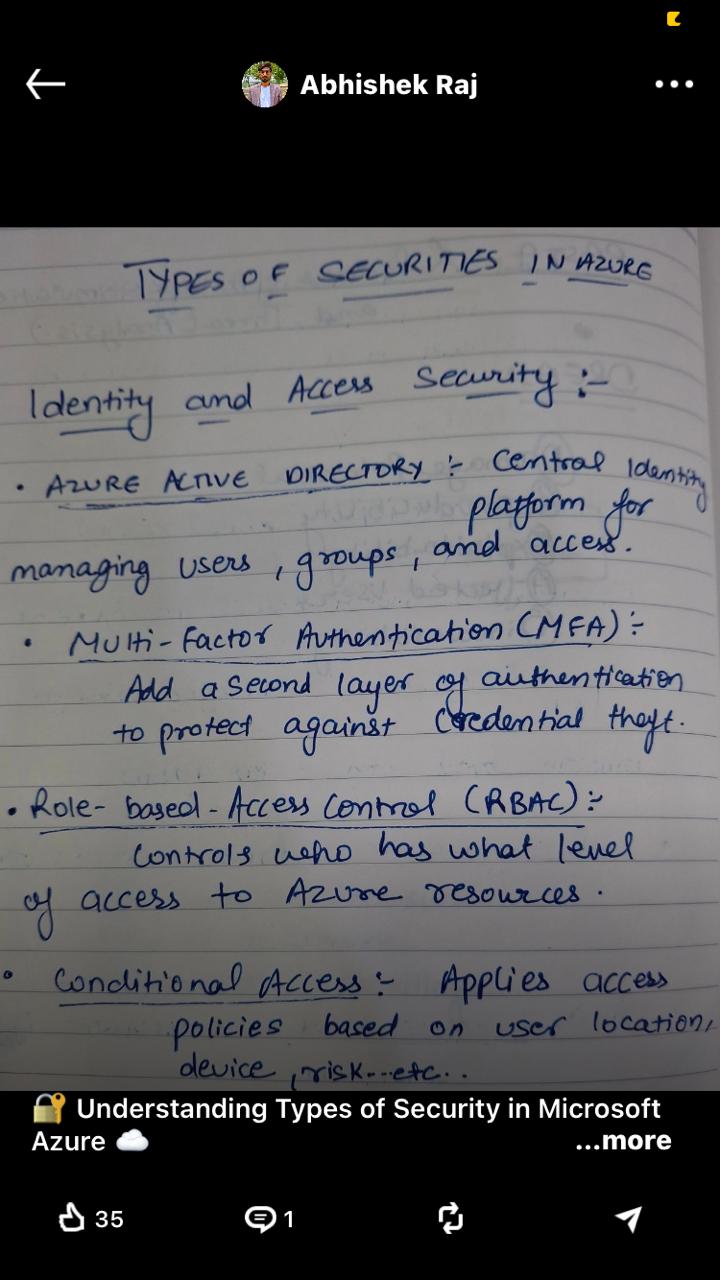 Abhishek Raj
TYPES OF SECURITIES IN AZURE
Identity and Access Security :-
• AZURE ACTIVE DIRECTORY :- Central Identity
platform for
managing users, groups, and access.
• Multi-Factor Authentication (MFA) :-
Add a second layer of authentication
to protect against Credential theft.
• Role-based-Access Control (RBAC) :-
Controls who has what level
of access to Azure resources.
• Conditional Access :- Applies access
policies based on user location,
device, risk...etc..
🔐 Understanding Types of Security in Microsoft
Azure ☁️ ...more
35 1